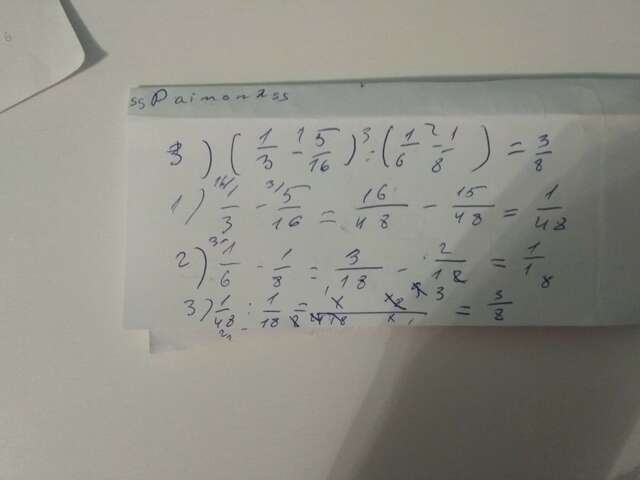 6
ssPaimonXss
3) (1/3 - 5/16) : (1/6 - 1/8) = 3/8
1) 1/3 - 5/16 = 16/48 - 15/48 = 1/48
2) 1/6 - 1/8 = 3/18 - 2/18 = 1/18
3) 1/48 : 1/18 = 3/8